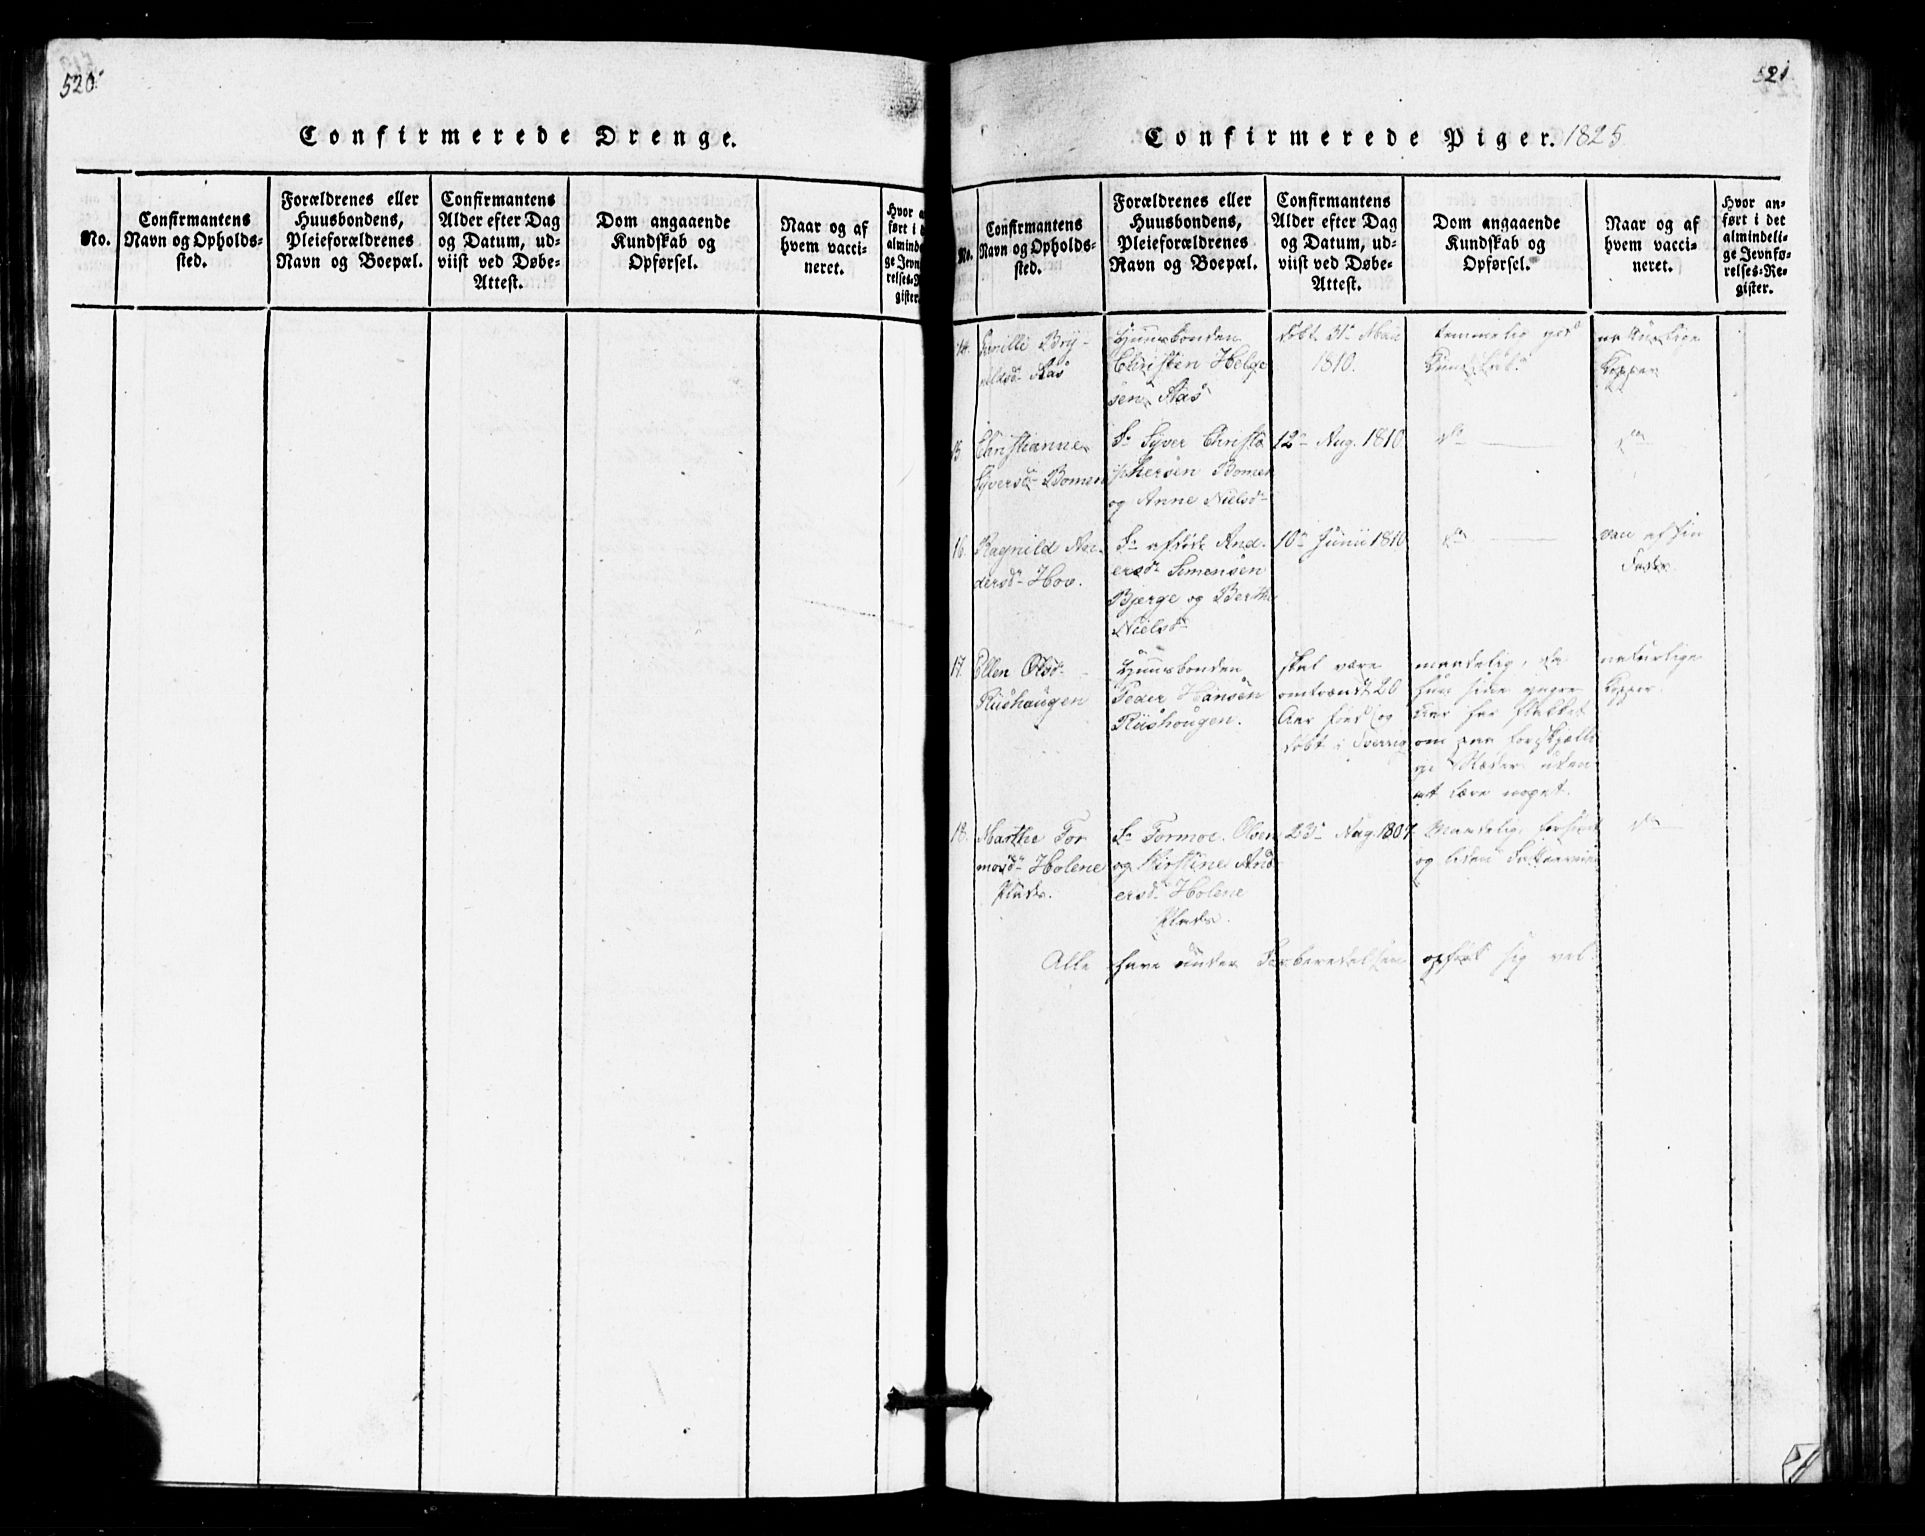 520
Confirmerede Drenge.
No.
Confirmantens
Navn og Opholds-
sted.
Forældrenes eller
Huusbondens,
Pleieforældrenes
Navn og Boepæl.
Confirmantens
Alder efter Dag
og Datum, ud-
viist ved Døbe-
Attest.
Dom angaaende
Kundskab og
Opførsel.
Naar og af
hvem vacci-
neret.
Hvor
ført i
almind
ge Jevn
relses-
gister.
521
Confirmerede Piger. 1825
No.
Confirmantens
Navn og Opholds-
sted.
Forældrenes eller
Huusbondens,
Pleieforældrenes
Navn og Boepæl.
Confirmantens
Alder efter Dag
og Datum, ud-
viist ved Døbe-
Attest.
Dom angaaende
Kundskab og
Opførsel.
Naar og af
hvem vacci-
neret.
Hvor an-
ført i det
almindeli-
ge Jevnfø-
relses-Re-
gister.
14.
Aas
Huusbonden
Christen Helge
sen Aas
døbt 31 Maii
1810.
temmelig god
Kundskab.
naturlige
Kopper
Christianne
Syversd Bomen
Syver Christo
phersen Bomen
og Anne Nielsd
12 Aug. 1810
do
do
16.
Ragnild An-
dersd Hov.
And-
ers Simensen
Bjerge og Berthe
Nielsd
10 Junii 1810
do
vac af sin
Fader.
17.
Ellen Olsd
Riishaugen
Huusbonden
Peder Hansen
Riishougen.
skal være
omtrendt 20
Aar født og
døbt i Sverrig
maadelig, da
hun sine yngre
Aar har flakket
om paa forskjelli
ge Stæder uden
at lære noget.
naturlige
Kopper.
18.
Marthe Tor
mosd Holene
Plads.
Tormoe Olsen
og Kirstine And
ersd Holene
Plads.
23 Aug. 1807
Maadelig,
og liden
do
Alle have under Forberedelsen opført sig vel.